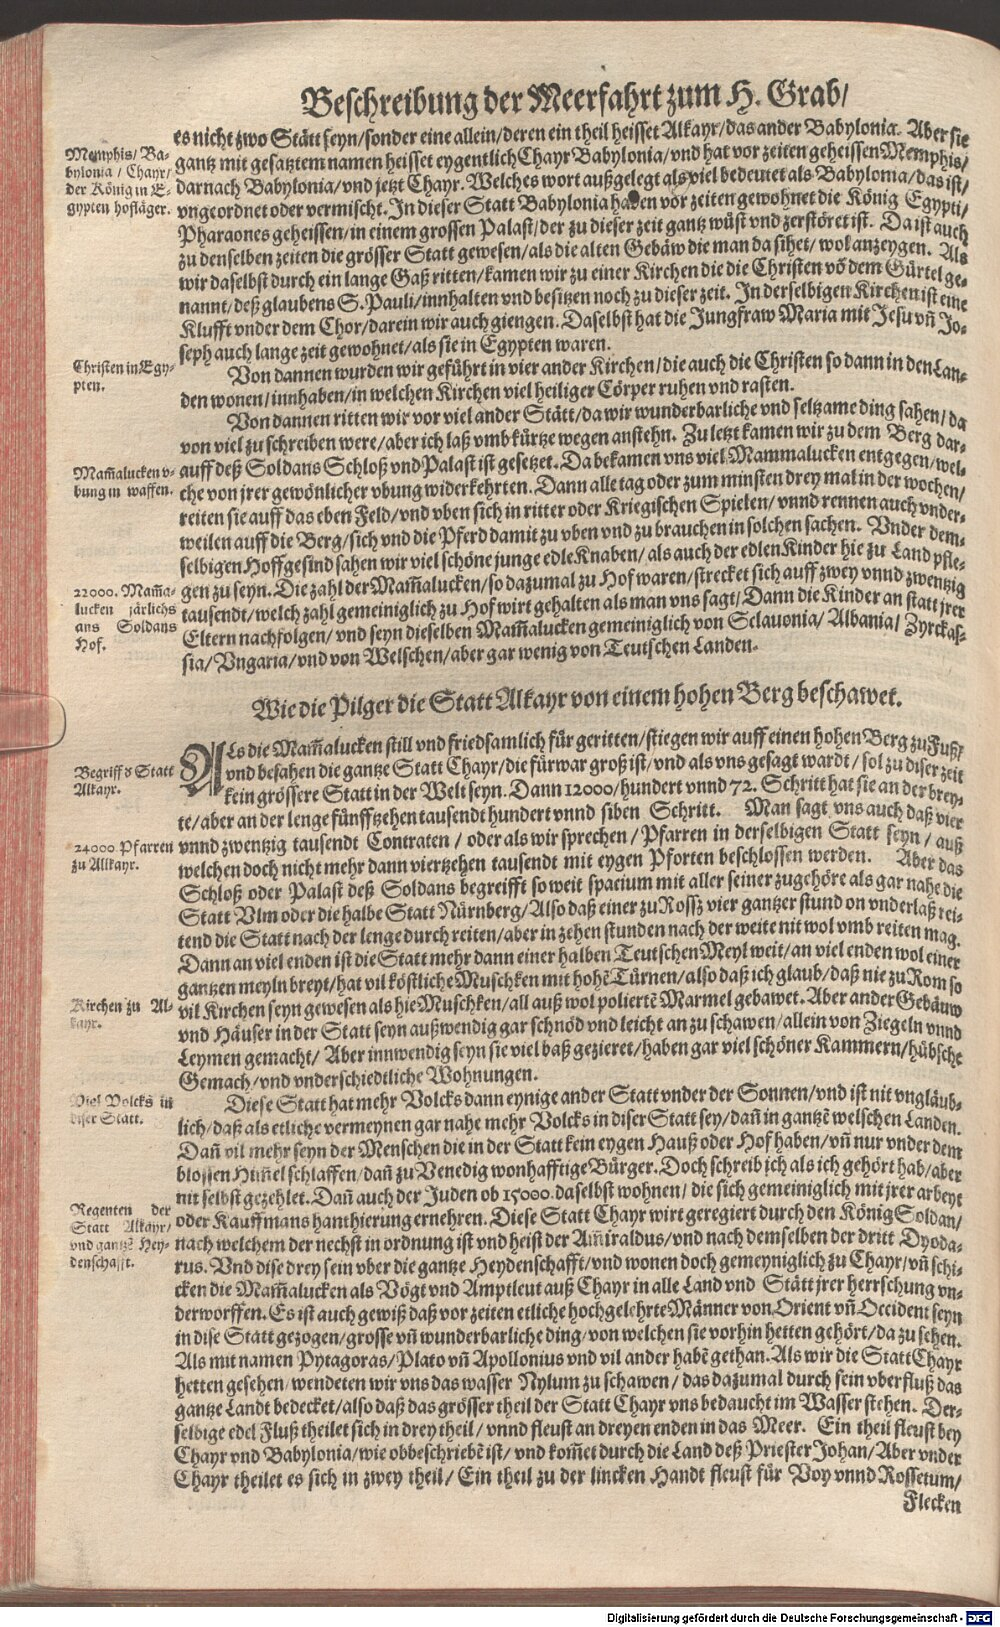 Beschreibung der Meerfahrt zum H. Grab/
es nicht zwo Stätt seyn/sonder eine allein/deren ein theil heisset Alkayr/das ander Babylonia. Aber sie
gantz mit gesatztem namen heisset eygentlich Chayr Babylonia/vnd hat vor zeiten geheissen Memphis/
darnach Babylonia/vnd jetzt Chayr. Welches wort außgelegt als viel bedeutet als Babylonia/das ist/
vngeordnet oder vermischt. In dieser Statt Babylonia haben vor zeiten gewohnet die König Egypti/
Pharaones geheissen/in einem grossen Palast/der zu dieser zeit gantz wüst vnd zerstöret ist. Da ist auch
zu denselben zeiten die grösser Statt gewesen/als die alten Gebäw die man da sihet/wol anzeygen. Als
wir daselbst durch ein lange Gaß ritten/kamen wir zu einer Kirchen die die Christen võ dem Gürtel ge-
nannt/deß glaubens S. Pauli/innhalten vnd besitzen noch zu dieser zeit. In derselbigen Kirchen ist eine
Klufft vnder dem Chor/darein wir auch giengen. Daselbst hat die Jungfraw Maria mit Jesu vñ Jo-
seph auch lange zeit gewohnet/als sie in Egypten waren.
Memphis/ Ba-
bylonia / Chayr/
der König in E-
gypten hofläger.
Von dannen wurden wir geführt in vier ander Kirchen/die auch die Christen so dann in den Lan-
den wonen/innhaben/in welchen Kirchen viel heiliger Cörper ruhen vnd rasten.
Christen in Egy-
pten.
Von dannen ritten wir vor viel ander Stätt/da wir wunderbarliche vnd seltzame ding sahen/da
von viel zu schreiben were/aber ich laß vmb kürtze wegen anstehn. Zu letzt kamen wir zu dem Berg dar-
auff deß Soldans Schloß vnd Palast ist gesetzet. Da bekamen vns viel Mammalucken entgegen/wel-
che von jrer gewönlicher vbung widerkehrten. Dann alle tag oder zum minsten drey mal in der wochen/
reiten sie auff das eben Feld/vnd vben sich in ritter oder Kriegischen Spielen/vnnd rennen auch vnder-
weilen auff die Berg/sich vnd die Pferd damit zu vben vnd zu brauchen in solchen sachen. Vnder dem-
selbigen Hoffgesind sahen wir viel schöne junge edle Knaben/als auch der edlen Kinder hie zu Land pfle-
gen zu seyn. Die zahl der Mam̃alucken/so dazumal zu Hof waren/strecket sich auff zwey vnnd zwentzig
tausendt/welch zahl gemeiniglich zu Hof wirt gehalten als man vns sagt/Dann die Kinder an statt jrer
Eltern nachfolgen/vnd seyn dieselben Mam̃alucken gemeiniglich von Sclavonia/Albania/Zyrckas-
sia/Vngaria/vnd von Welschen/aber gar wenig von Teutschen Landen.
Mam̃alucken v-
bung in waffen.
22000. Mam̃a-
lucken järlichs
ans Soldans
Hof.
Wie die Pilger die Statt Alkayr von einem hohen Berg beschawet.
Als die Mam̃alucken still vnd friedsamlich für geritten/stiegen wir auff einen hohen Berg zu Fuß/
vnd besahen die gantze Statt Chayr/die fürwar groß ist/vnd als vns gesagt wardt/sol zu diser zeit
kein grössere Statt in der Welt seyn. Dann 12000/hundert vnnd 72. Schritt hat sie an der brey-
te/aber an der lenge fünfftzehen tausendt hundert vnnd siben Schritt. Man sagt vns auch daß vier
vnnd zwentzig tausendt Contraten / oder als wir sprechen / Pfarren in derselbigen Statt seyn / auß
welchen doch nicht mehr dann viertzehen tausendt mit eygen Pforten beschlossen werden. Aber das
Schloß oder Palast deß Soldans begreifft so weit spacium mit aller seiner zugehöre als gar nahe die
Statt Vlm oder die halbe Statt Nürnberg/Also daß einer zu Rossz vier gantzer stund on vnderlaß rei-
tend die Statt nach der lenge durch reiten/aber in zehen stunden nach der weite nit wol vmb reiten mag.
Dann an viel enden ist die Statt mehr dann einer halben Teutschen Meyl weit/an viel enden wol einer
gantzen meyln breyt/hat vil köstliche Muschken mit hohẽ Türnen/also daß ich glaub/daß nie zu Rom so
vil Kirchen seyn gewesen als hie Muschken/all auß wol poliertẽ Marmel gebawet. Aber ander Gebäuw
vnd Häuser in der Statt seyn außwendig gar schnöd vnd leicht an zu schawen/allein von Ziegeln vnnd
Leymen gemacht/ Aber innwendig seyn sie viel baß gezieret/haben gar viel schöner Kammern/hübsche
Gemach/vnd vnderschiedtliche Wohnungen.
Begriff d Statt
Alkayr.
24000 Pfarren
zu Allkayr.
Kirchen zu Al-
kayr.
Diese Statt hat mehr Volcks dann eynige ander Statt vnder der Sonnen/vnd ist nit vngläub-
lich/daß als etliche vermeynen gar nahe mehr Volcks in diser Statt sey/dañ in gantzẽ welschen Landen.
Dañ vil mehr seyn der Menschen die in der Statt kein eygen Hauß oder Hof haben/vñ nur vnder dem
blossen Him̃el schlaffen/dañ zu Venedig wonhafftige Bürger. Doch schreib ich als ich gehört hab/aber
nit selbst gezehlet. Dañ auch der Juden ob 15000. daselbst wohnen/die sich gemeiniglich mit jrer arbeyt
oder Kauffmans hanthierung ernehren. Diese Statt Chayr wirt geregiert durch den König Soldan/
nach welchem der nechst in ordnung ist vnd heist der Am̃iraldus/vnd nach demselben der dritt Dyoda-
rus. Vnd dise drey sein vber die gantze Heydenschafft/vnd wonen doch gemeyniglich zu Chayr/vñ schi-
cken die Mam̃alucken als Vögt vnd Amptleut auß Chayr in alle Land vnd Stätt jrer herrschung vn-
derworffen. Es ist auch gewiß daß vor zeiten etliche hochgelehrte Männer von Orient vñ Occident seyn
in dise Statt gezogen/grosse vñ wunderbarliche ding/von welchen sie vorhin hetten gehört/da zu sehen.
Als mit namen Pytagoras/Plato vñ Apollonius vnd vil ander habẽ gethan. Als wir die Statt Chayr
hetten gesehen/wendeten wir vns das wasser Nylum zu schawen/das dazumal durch sein vberfluß das
gantze Landt bedecket/also daß das grösser theil der Statt Chayr vns bedaucht im Wasser stehen. Der-
selbige edel Fluß theilet sich in drey theil/vnnd fleust an dreyen enden in das Meer. Ein theil fleust bey
Chayr vnd Babylonia/wie obbeschriebẽ ist/ vnd kom̃et durch die Land deß Priester Johan/Aber vnder
Chayr theilet es sich in zwey theil/ Ein theil zu der lincken Handt fleust für Voy vnnd Rossetum/
Flecken
Viel Volcks in
diser Statt.
Regenten der
Statt Alkayr/
vnd gantzẽ Hey-
denschafft.
Digitalisierung gefördert durch die Deutsche Forschungsgemeinschaft - DFG